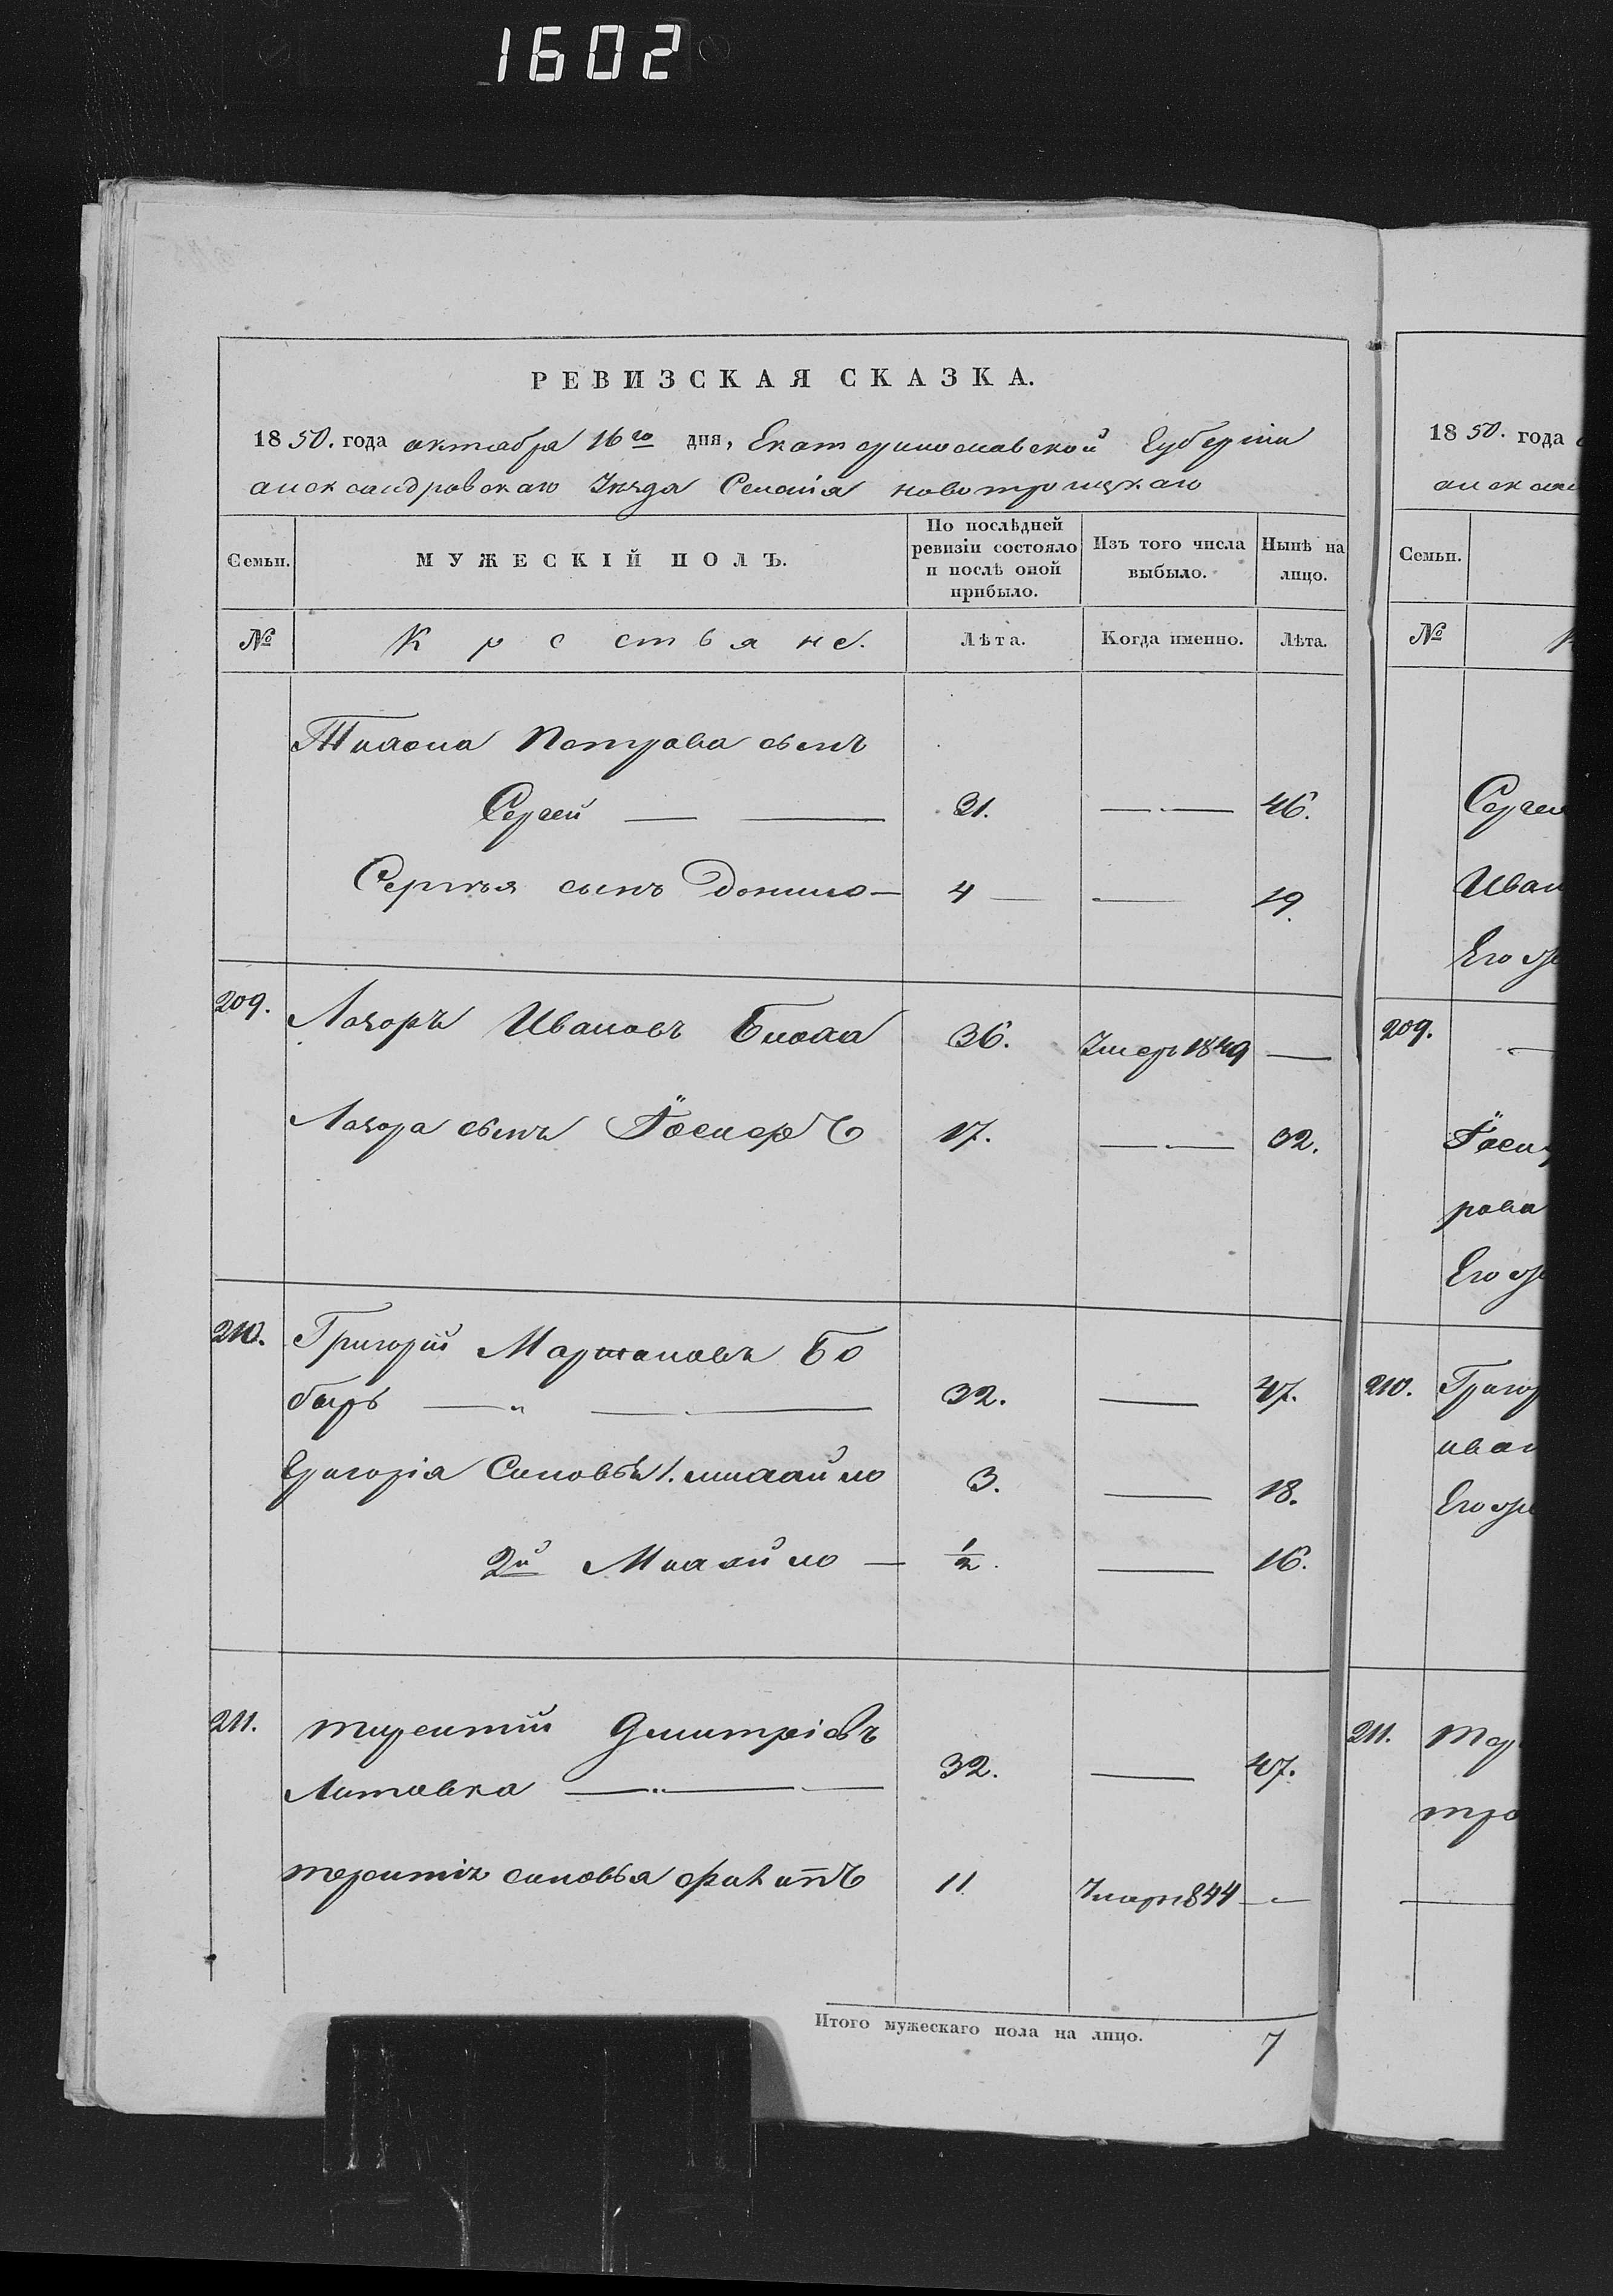 1602
РЕВИЗСКАЯ СКАЗКА.
1850. года октабра 16го дня, Екатеринославской Губернiи
александровскаго Уѣзда Селенiя новотроицкаго
Семьи. МУЖЕСКІЙ ПОЛЪ. По послѣдней ревизіи состояло и послѣ оной прибыло. Изъ того числа выбыло. Нынѣ на лицо.
№ Крестьяне. Лѣта. Когда именно. Лѣта.
Петрова сынъ
Сергей 31. 46.
Сергѣя сынъ Данило 4 19.
209. Лазорь Ивановъ Блоха 36. Умеръ 1849
Лазора сынъ 17. 32.
210. Григорій Мартановъ Бо
барь 32. 47.
Григорія Сыновья 1. михайло 3. 18.
2й Михайло ½. 16.
211. терентій Дмитріевъ
Литовка 32. 47.
терентiя сыновья 11 Умеръ 1844
Итого мужескаго пола на лицо. 7
1850. года
Семьи.
№
Сергея
Иван
Его
209.
рова
Его
210. Григор
иван
Его
211. Тер